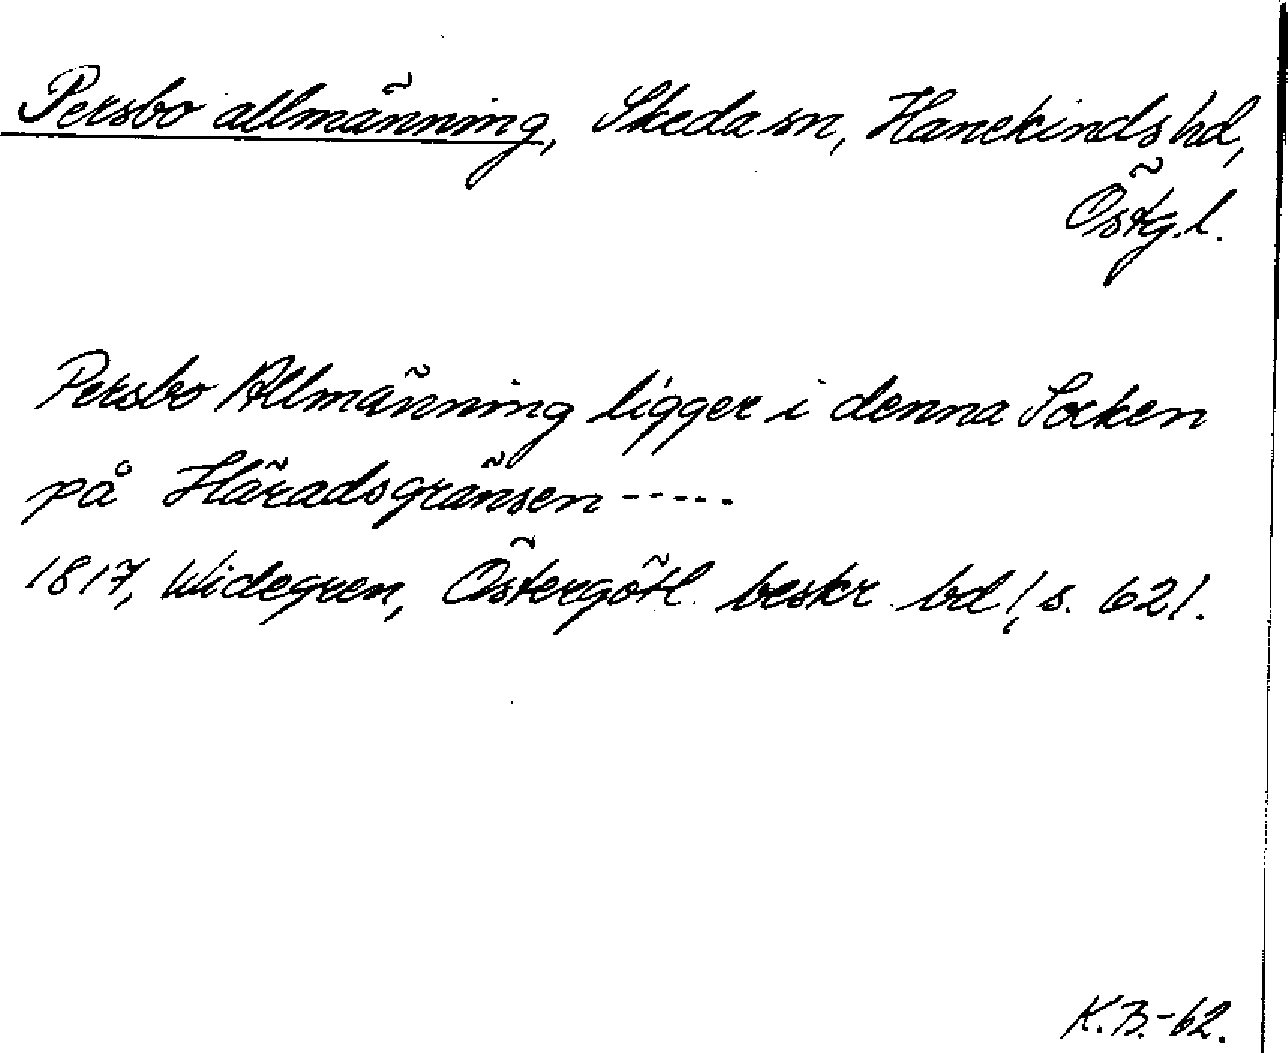 Persbo allmänning, Skeda sn, Hanekinds hd,
Östg.l.
Persbo Allmänning ligger i denna Socken
på Häradsgränsen -----
1817, Widegren, Östergötl. beskr. bd 1, s. 621.
K.B.-62.